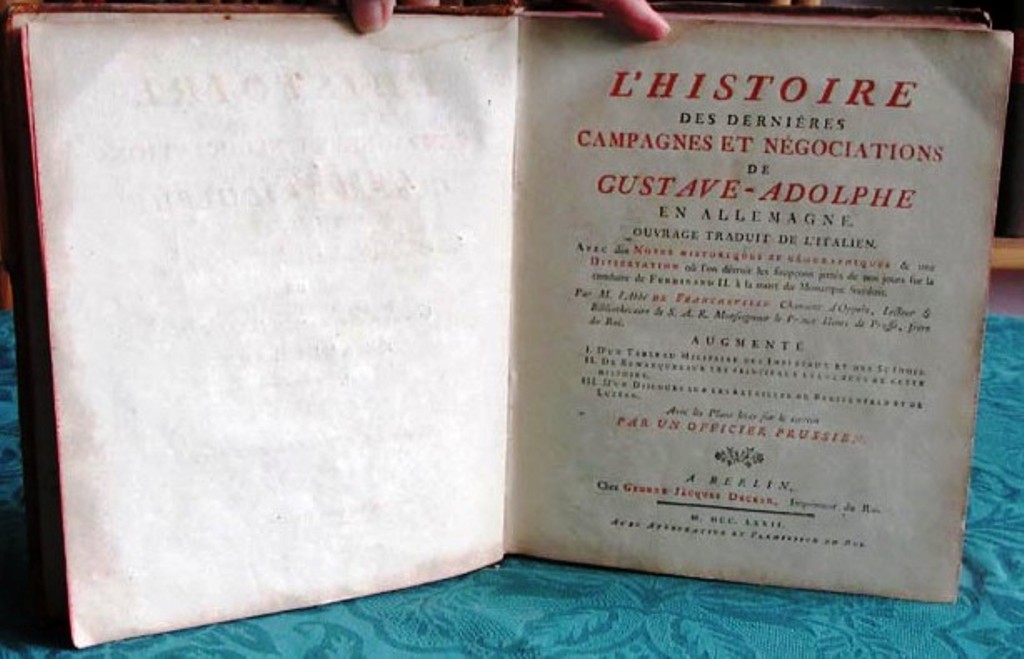 L'HISTOIRE
DES DERNIÉRES
CAMPAGNES ET NÉGOCIATIONS
DE
GUSTAVE-ADOLPHE
EN ALLEMAGNE.
OUVRAGE TRADUIT DE L'ITALIEN.
AVEC des NOTES HISTORIQUES ET GÉOGRAPHIQUES & une
DISSERTATION où l'on détruit les soupçons jettés de nos jours sur la
conduite de FERDINAND II. à la mort du Monarque Suédois.
Par M. l'Abbé DE FRANCHEVILLE Chanoine d'Oppeln, Lecteur &
Bibliothécaire de S. A. R. Monseigneur le Prince Henri de Prusse, frère
du Roi.
AUGMENTÉ
I. D'UN TABLEAU MILITAIRE DES IMPERIAUX ET DES SUÉDOIS.
II. DE REMARQUES SUR LES PRINCIPAUX DE CETTE
HISTOIRE.
III. D'UN DISCOURS SUR LES BATAILLES DE BREITENFELD ET DE
LUTZEN.
Avec les Plans levés sur le terrein
PAR UN OFFICIER PRUSSIEN.
A BERLIN,
Chez GEORGE JACQUES DECKER, Imprimeur du Roi.
M. DCC. LXXII.
AVEC APPROBATION ET PERMISSION DU ROI.